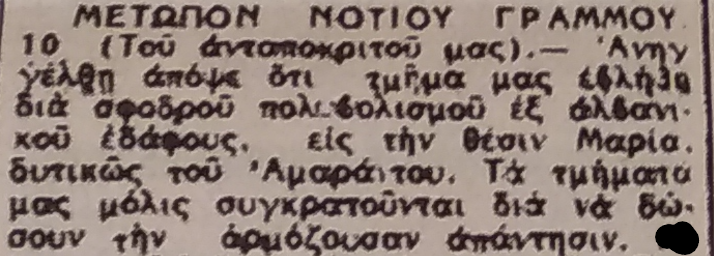 ΜΕΤΩΠΟΝ ΝΟΤΙΟΥ ΓΡΑΜΜΟΥ
10 (Τοῦ ἀνταποκριτοῦ μας).— Ἀνηγ
γέλθη ἀπόψε ὅτι τμῆμα μας ἐβλήθη
διὰ σφοδροῦ πολυβολισμοῦ ἐξ ἀλβανι-
κοῦ ἐδάφους, εἰς τὴν θέσιν Μαρία,
δυτικῶς τοῦ Ἀμαράντου. Τὰ τμήματα
μας μόλις συγκρατοῦνται διὰ νὰ δώ-
σουν τὴν ἁρμόζουσαν ἀπάντησιν.